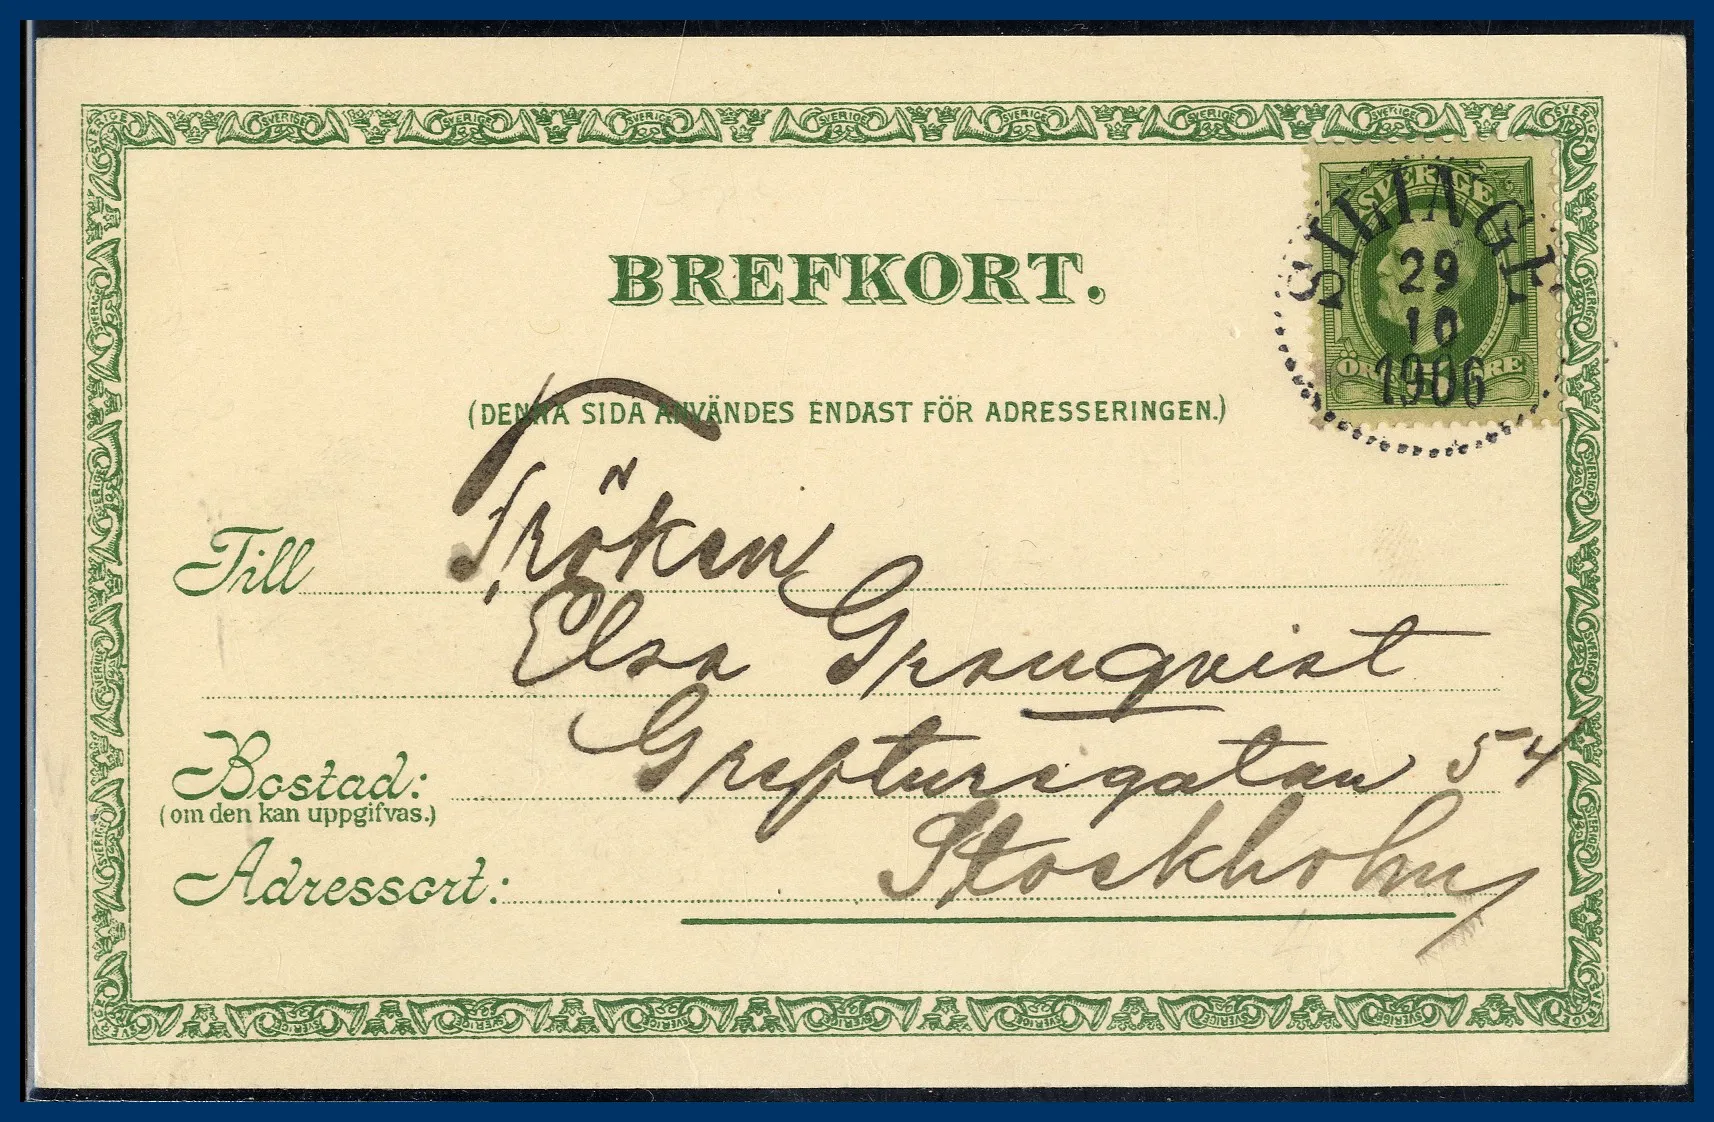 BREFKORT.
SVERIGE
SILINGE
29
10
1906
(DENNA SIDA ANVÄNDES ENDAST FÖR ADRESSERINGEN.)
Till Fröken
Elsa Granqvist
Bostad: Grefturegatan 54
(om den kan uppgifvas.)
Adressort: Stockholm